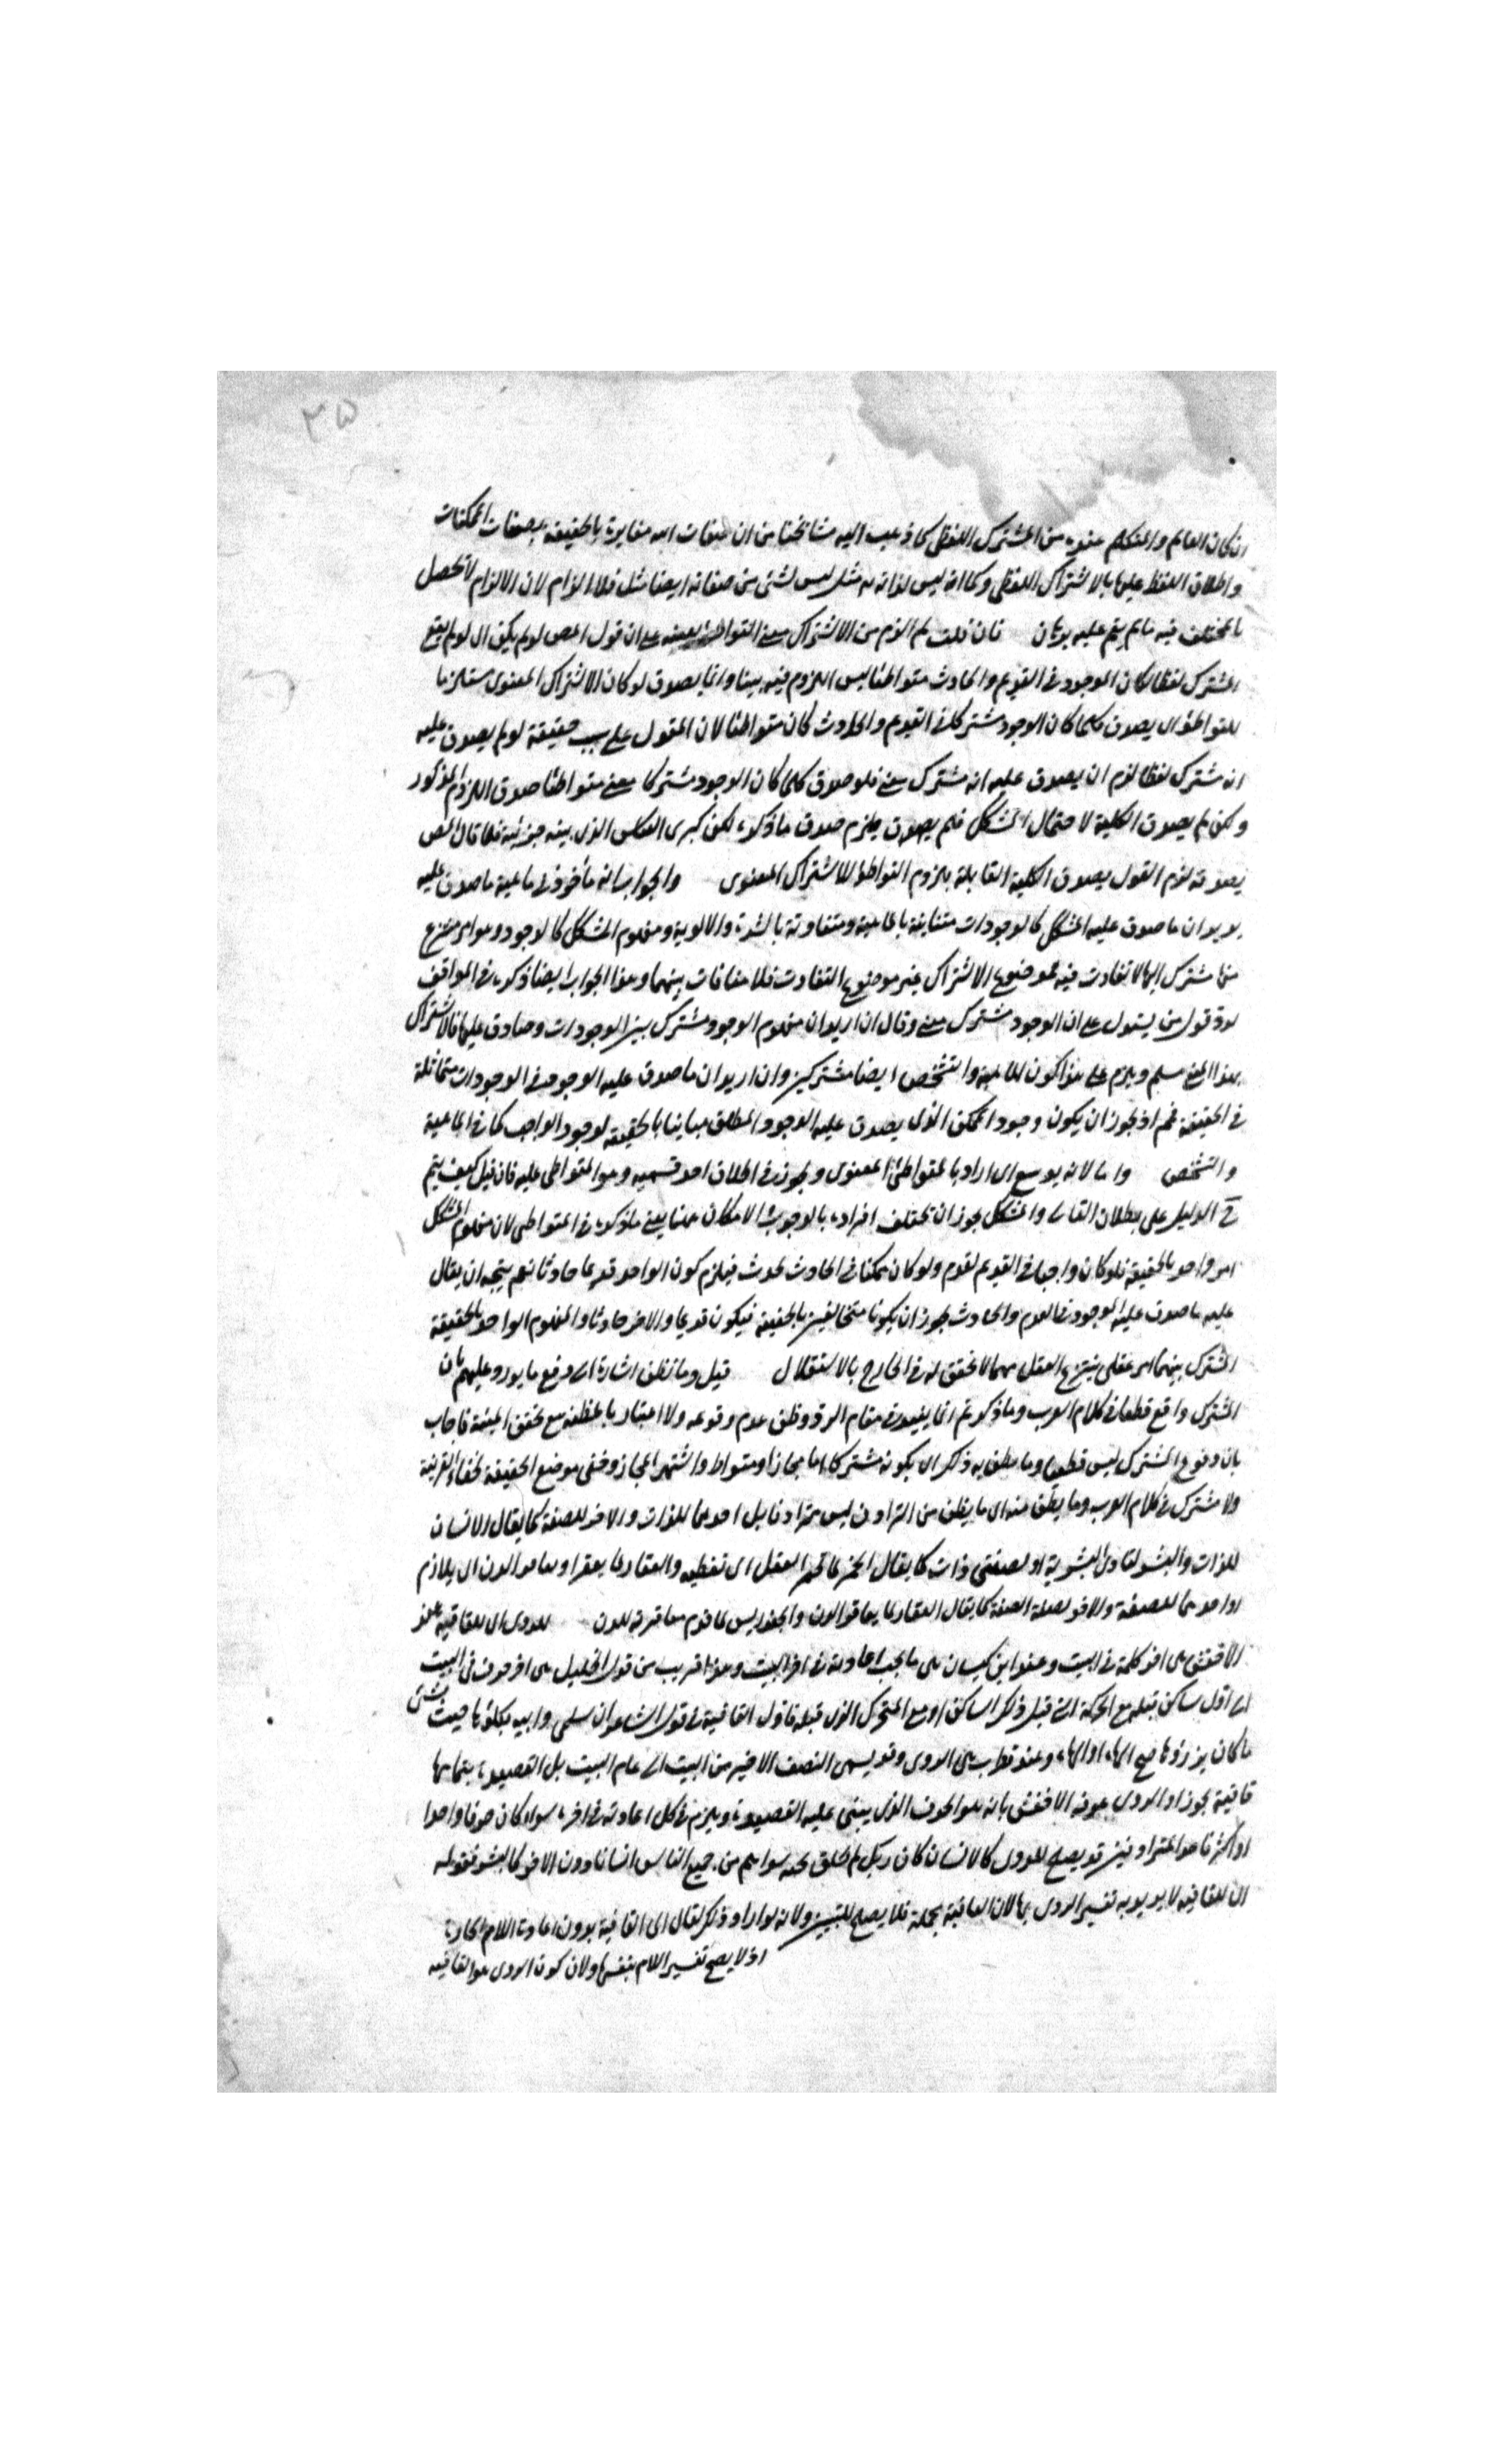 ٣٥
ان كان العالم والمتكلم عنده من المشترك اللفظى كما ذهب اليه مشائخنا من ان صفات الله مغايرة بالحقيقة لصفات الممكنات
واطلاق اللفظ عليها بالاشتراك اللفظى وكما انه ليس لذاته مثل ليس لشئ من صفاته ايضا مثل فلا الزام لان الالزام لا يحصل
بالمختلف فيه ما لم يتم عليه برهان فان قلت لم الزم من الاشتراك معنى التواطئ على ان قول المص لو لم يكن اى لو لم يقع
المشترك لفظا لكان الموجود فى القديم والحادث متواطئا ليس اللزوم فيه بينا وانما يصدق لو كان الاشتراك المعنوى مستلزما
للتواطؤ اى يصدق كلما كان الوجود مشتركا فى القديم والحادث كان متواطئا لان المقول على حقيقة لو لم يصدق عليه
انه مشترك لفظا لزم ان يصدق عليه انه مشترك معنى فلو صدق كلما كان الوجود مشتركا معنى متواطئا صدق اللزوم المذكور
ولكن لم يصدق الكلية لاحتمال المشكك فلم يصدق ماذكره لكن كبرى العكس الذى جزئية فلما قال المص
بصدقه لزم القول بصدق الكلية القائلة بلزوم التواطؤ للاشتراك المعنوى والجواب انه مأخوذ فى ماهية ما صدق عليه
يريد ان ما صدق عليه المشكك كالوجودات متباينة بالماهية ومتفاوتة بالشدة والاولوية ومفهوم المشكك كالوجود وهو امر منتزع
منها مشترك لا تفاوت فيه فموضوع الاشتراك غير موضوع التفاوت فلا منافات بينهما وهذا الجواب ايضا ذكره فى المواقف
لرد قول من يستدل على ان الوجود مشترك معنى وقال ان اريد ان مفهوم الوجود مشترك بين الوجودات وصادق عليها فالاشتراك
بهذا المعنى مسلم ويلزم على هذا كون الماهية والتشخص ايضا مشتركين وان اريد ان ما صدق عليه الوجود فى الوجودات متماثلة
فى الحقيقة فمم اذ يجوز ان يكون وجود الممكن الذى يصدق عليه الوجود المطلق مباينا بالحقيقة لوجود الواجب كما فى الماهية
والتشخص واما لانه يوسع اى اراد بالمتواطئ المعنوى ويجوز فى اطلاق احد قسميه وهو المتواطى عليه فان قيل كيف يتم
ح الدليل على بطلان التالى والمشكك يجوز ان تختلف افراده بالوجوب والامكان قلنا يعنى ماذكره فى المتواطى لان مفهوم المشكك
امر واحد بالحقيقة فلو كان واجبا فى القديم لقدم ولو كان ممكنا فى الحادث لحدث فيلزم كون الواحد قديما حادثا نعم يتجه ان يقال
عليه ما صدق عليه الموجود فى القديم والحادث يجوز ان يكونا متخالفين بالحقيقة فيكون قديما والاخر حادثا والمفهوم الواحد بالحقيقة
المشترك بينهما امر عقلى ينتزع العقل منهما لا تحقق له فى الخارج بالاستقلال قيل وما نظن اشارة الى دفع ما يورد عليهم بان
المشترك واقع قطعا فى كلام العرب وماذكرتم انما يفيد فى مقام الرد وظن عدم وقوعه ولا اعتبار بالمظنة مع تحقق المئنة فاجاب
بان وقوع المشترك ليس قطعيا وما يظن به ذلك اى بكونه مشتركا اما مجازا ومتواط واشتهر المجاز وخفى موضع الحقيقة لخفاء القرينة
ولا مشترك فى كلام العرب وما يظن منه اى ما يظن من الترادف ليس مترادفا بل احدهما للذات والاخر للصفة كما يقال الانسان
للذات والبشر البشرية او لصفتى ذات كما يقال الخمر لما تخمر العقل اى تغطيه والعقار لما يعقر او يعاقر الدن اى يلازم
او احدهما للصفة والاخر لصفة الصفة كما يقال العقار لما يعاقر الدن والخندريس لما قدم معاقرته للدن للروى اى للقافية عند
الاخفش هى اخر كلمة فى البيت وعند ابن كيسان هى ما يجب اعادته فى اخر البيت وهذا قريب من قول الخليل هى اخر حرف فى البيت
الى اول ساكن قبله مع الحركة التى قبل ذلك الساكن او مع المتحرك الذى قبله فاول القافية فى قول الشاعر ان سلمى والله يكلؤها ضنت بشئ
ما كان يرزؤها فتح الهاء او الهاء وعند قطرب هى الروى وقد يسمى النصف الاخير من البيت الى تمام البيت بل القصيدة بتمامها
قافية تجوزا والروى عرفه الاخفش بانه هو الحرف الذى يبنى عليه القصيدة ويلزم فى كل اعادته فى اخره سواء كان حرفا واحدا
او اكثر فاحد المترادفين قد يصلح للروى كالانسان كان ربك لم يخلق سواهم من جميع الناس انسانا دون الاخر كالبشر فقوله
اى للقافية لا يريد به تفسير الروى بها لان القافية بجملة فلا يصلح للتبيين ولانه لو اراد ذلك لقال اى القافية بدون اعادة اللام الجارة
اذ لا يصح تفسير اللام بنفسها ولان كون الروى هو القافية